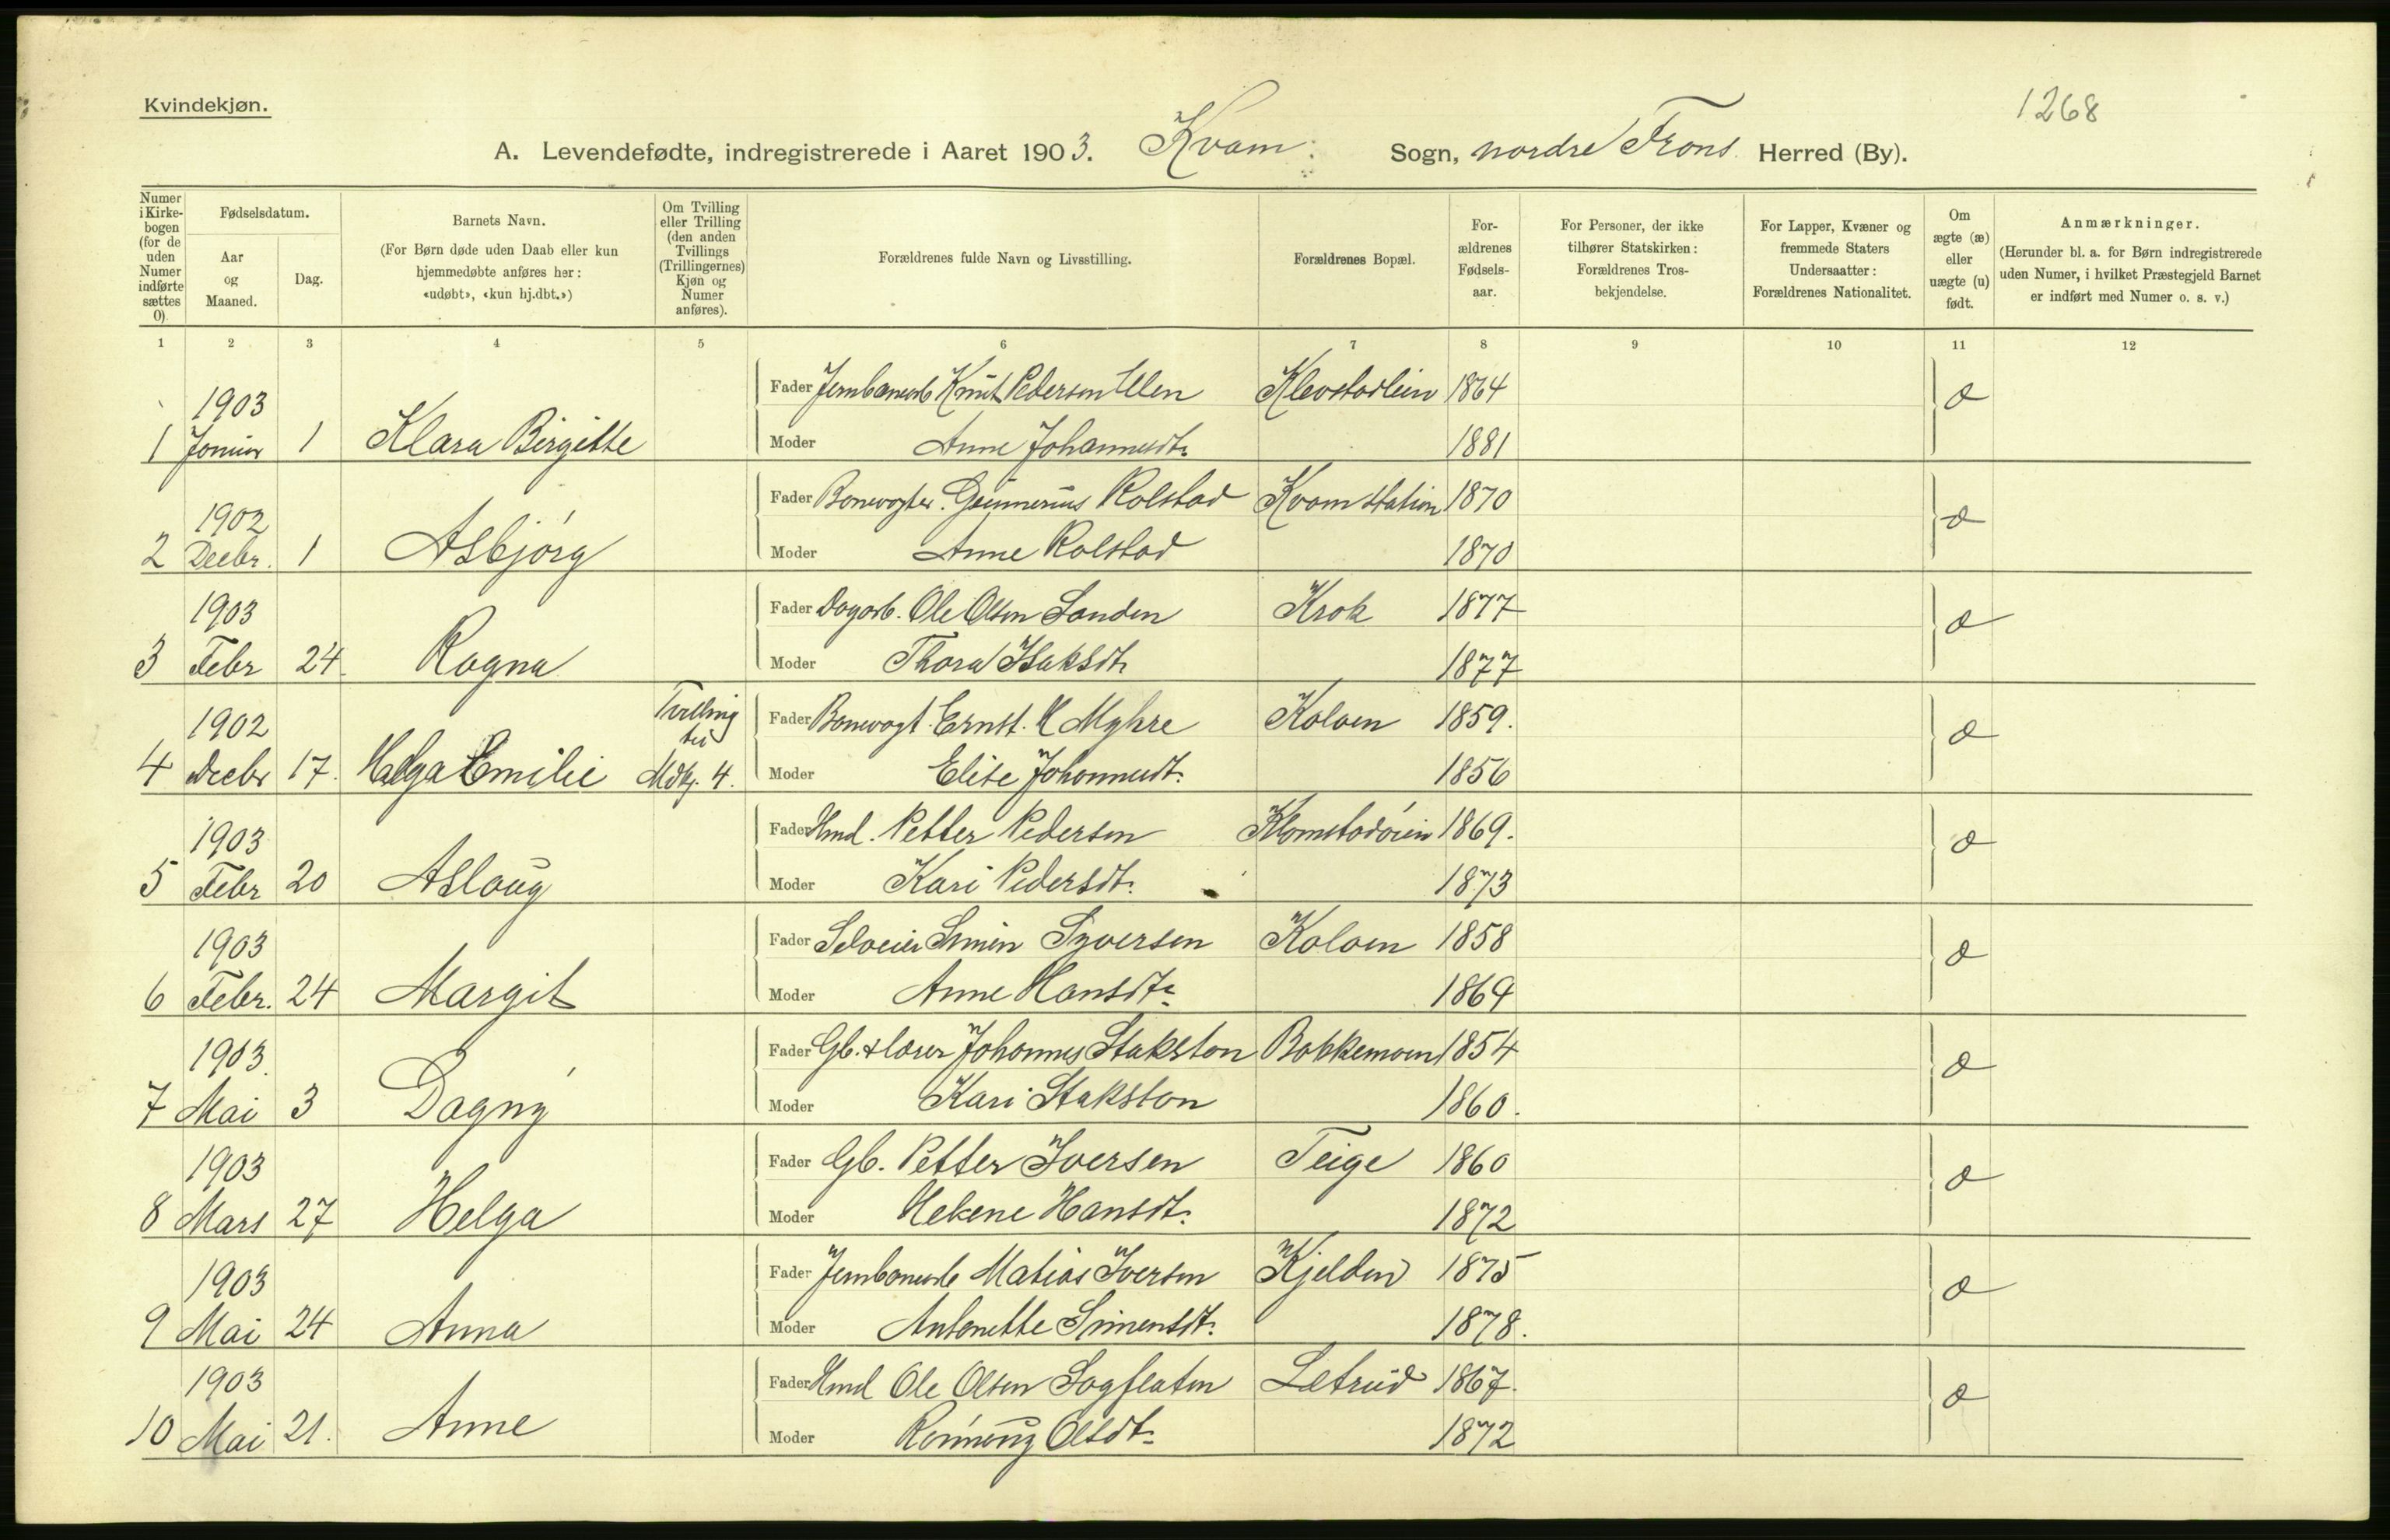 Kvindekjøn.
1268
A. Levendefødte, indregistrerede i Aaret 1903. Kvam. Sogn, nordre Frons Herred (By).
Numer i Kirkebogen (for de uden Numer indførte sættes 0).
Fødselsdatum.
Aar og Maaned.
Dag.
Barnets Navn.
(For Børn døde uden Daab eller kun hjemmedøbte anføres her: «udøbt», «kun hj.dbt.»)
Om Tvilling eller Trilling (den anden Tvillings (Trillingernes) Kjøn og Numer anføres).
Forældrenes fulde Navn og Livsstilling.
Forældrenes Bopæl.
For-ældrenes Fødsels-aar.
For Personer, der ikke tilhører Statskirken: Forældrenes Tros-bekjendelse.
For Lapper, Kvæner og fremmede Staters Undersaatter: Forældrenes Nationalitet.
Om ægte (æ) eller uægte (u) født.
Anmærkninger.
(Herunder bl. a. for Børn indregistrerede uden Numer, i hvilket Præstegjeld Barnet er indført med Numer o. s. v.)
1 2 3 4 5 6 7 8 9 10 11 12
1903 Fader Jernbanearb Knut Pedersen Ulen 1864 æ
1 Januar 1 Klara Birgitte Moder Anne Johannesdt. 1881
1902 Fader Banevogter. Gunnerius Rolstad Kvam station 1870 æ
2 Decbr. 1 Asbjørg Moder Anne Rolstad 1870
1903 Fader Dagarb. Ole Olsen Sanden Krok 1877 æ
3 Febr 24 Ragna Moder Thora Isaksdt. 1877
1902 Tvilling til Fader Banevogt. Ernst. M Myhre Kolven 1859. æ
4 Decbr 17. Helga Emilie Mdkj. 4. Moder Elise Johannesdt. 1856
1903 Fader Hmd. Petter Pedersen 1869. æ
5 Febr 20 Aslaug Moder Kari Pedersdt. 1873
1903 Fader Selveier Simen Syversen Kolven 1858 æ
6 Febr. 24 Margit Moder Anne Hansdt. 1869
1903 Fader Gb. & lærer Johannes Stakston Bakkemoen 1854 æ
7 Mai 3 Dagny Moder Kari Stakston 1860.
1903 Fader Gb. Petter Iversen Teige 1860 æ
8 Mars 27 Helga Moder Hansdt. 1872
1903 Fader Jernbanearb Matias Iversen Kjelden 1875 æ
9 Mai 24 Anna Moder Antonette Simensdt. 1878.
1903 Fader Hmd Ole Olsen Sagflaten Letrud 1867. æ
10 Mai 21. Anne Moder Rønnoug Olsdt. 1872